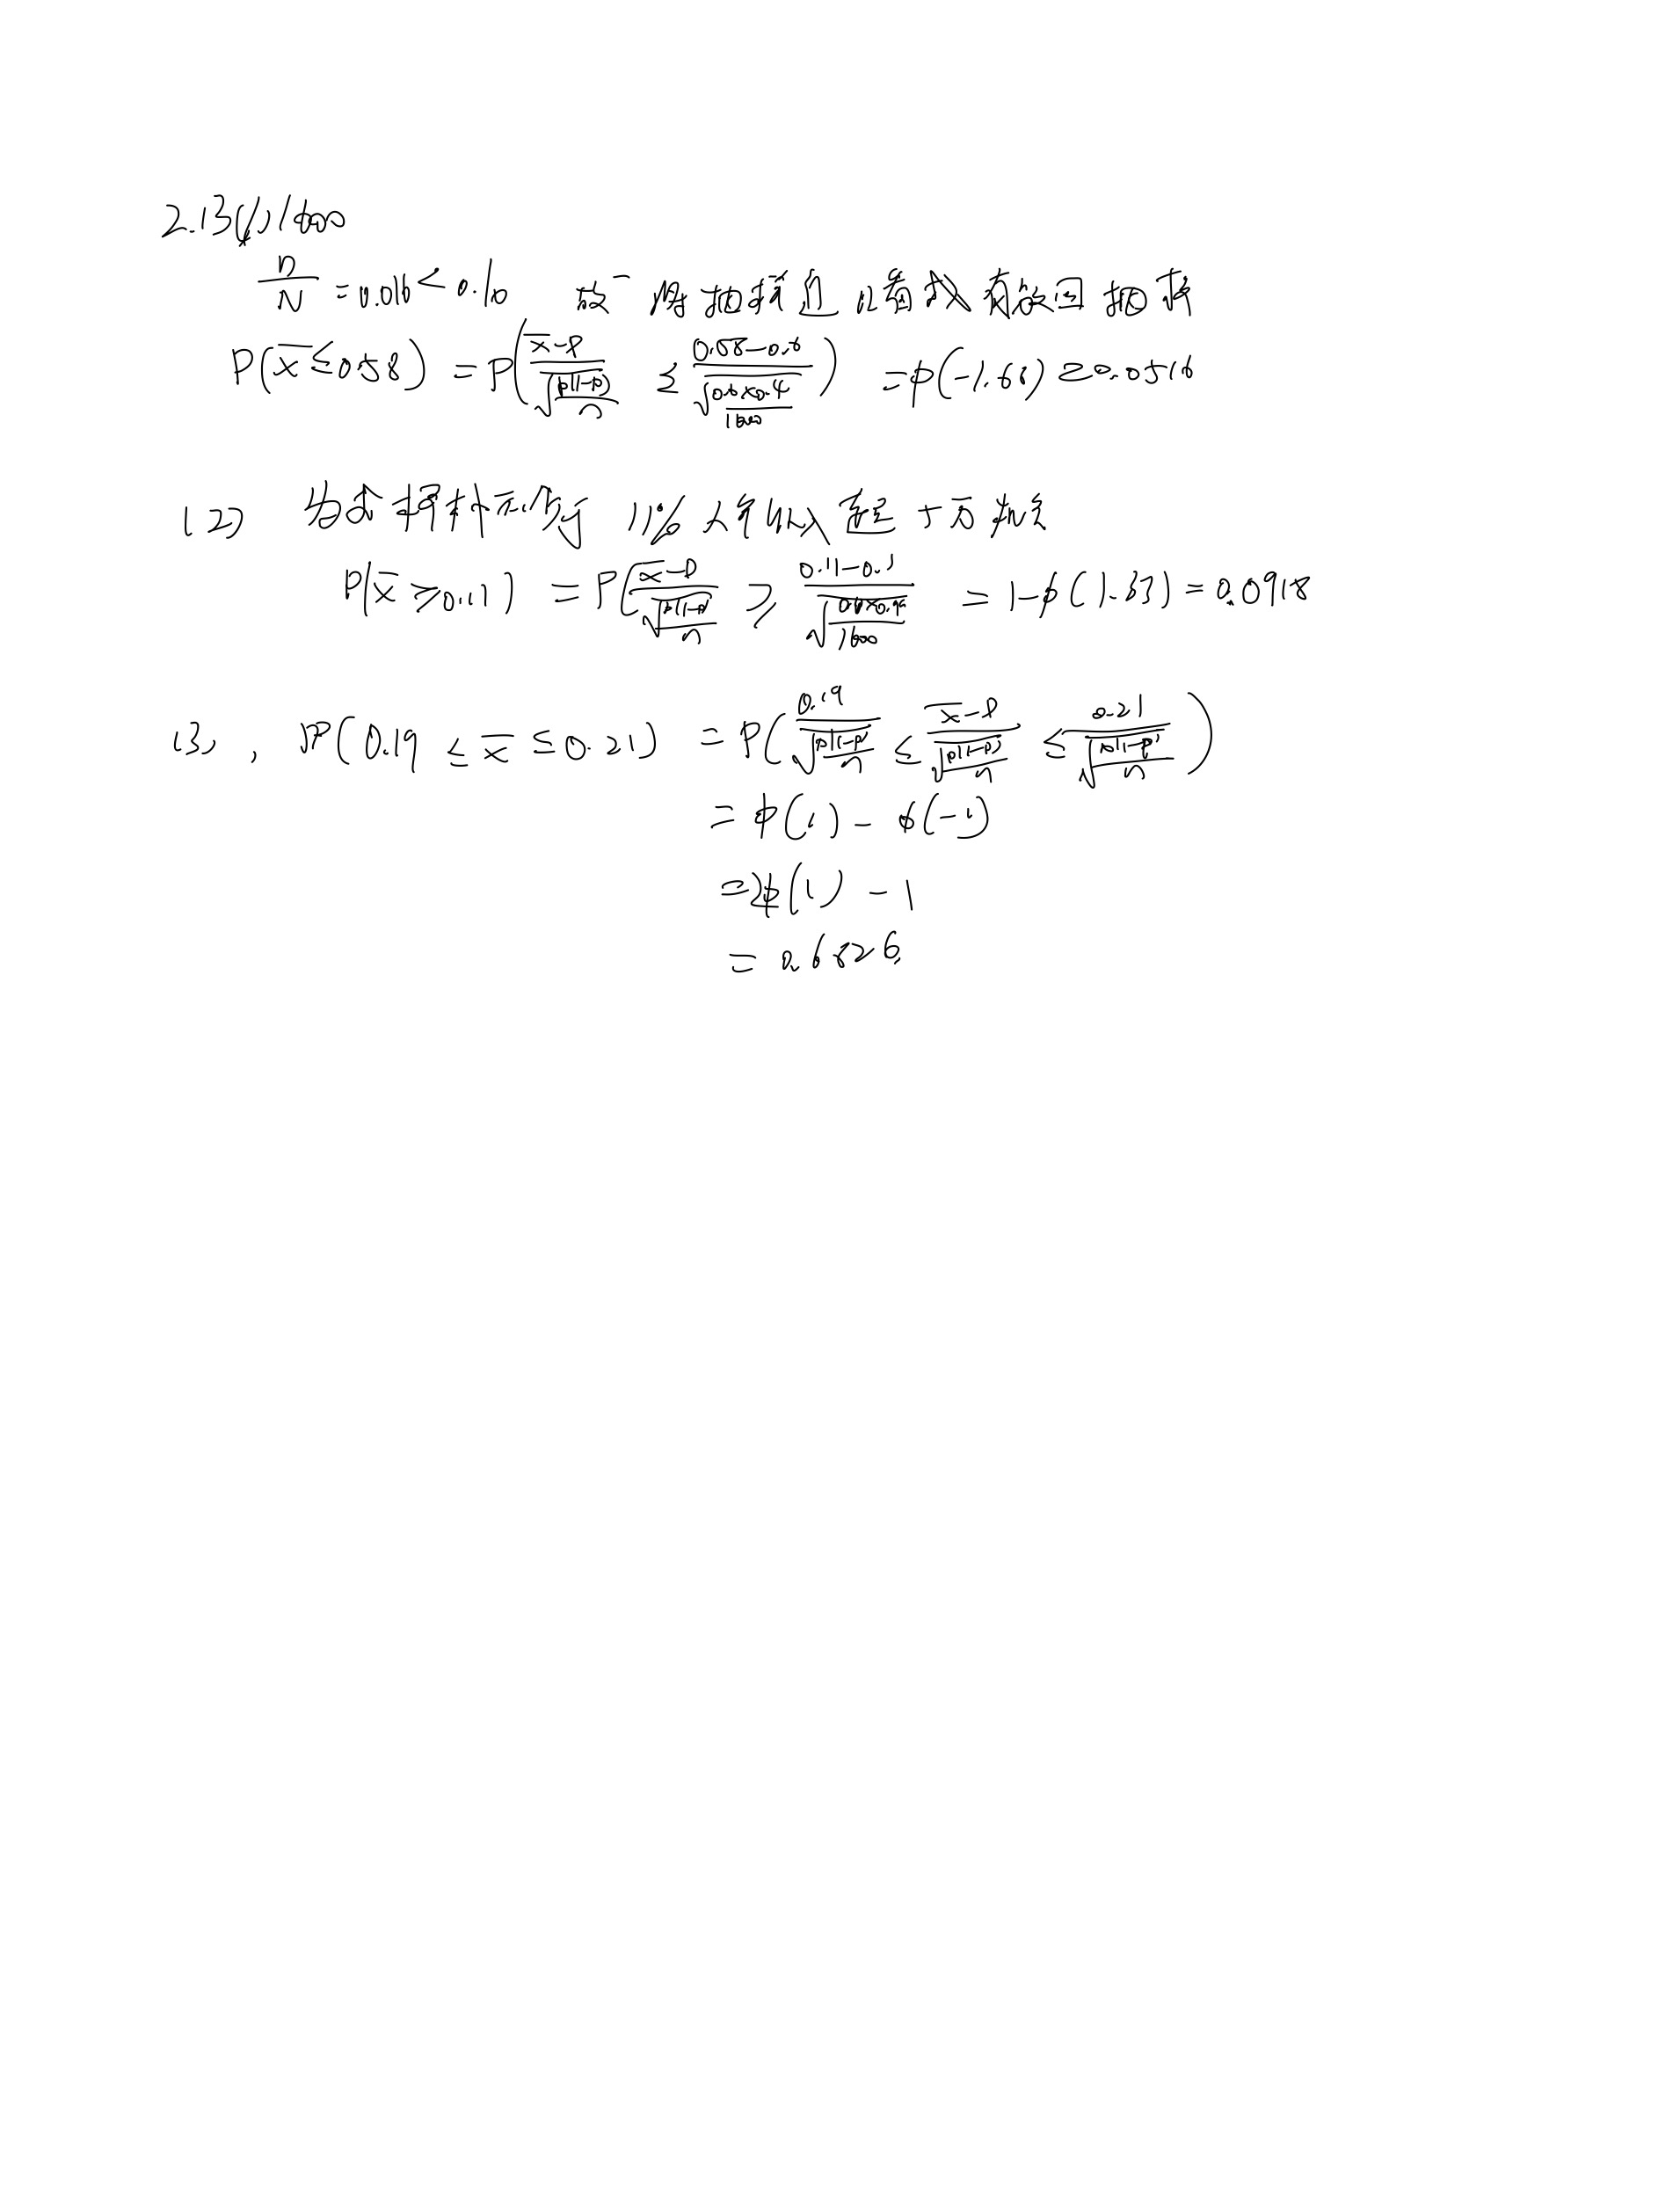 2.13(1) 1600
n/N = 0.016 < 0.10 故 抽样 可以看成有放回抽样
P(x̄ ≤ 0.58) = P((x̄-p)/√(p(1-p)/n) ≤ (0.58-0.6)/√(0.6×0.4/1600)) = φ(-1.63) = 0.0516
(2) 11% 人年收入超十万
P(x̄ ≥ 0.11) = P((x̄-p)/√(p(1-p)/n) ≥ (0.11-0.1)/√(/1600) = 1-φ(1.33) = 0.0918
(3), P(0.19 ≤ x̄ ≤ 0.21) = P(0.19/√(p(1-p)/n) ≤ (x̄-p)/√(p(1-p)/n) ≤ 0.21/√(p(1-p)/n))
= φ(1) - φ(-1)
= 2φ(1) - 1
= 0.6826